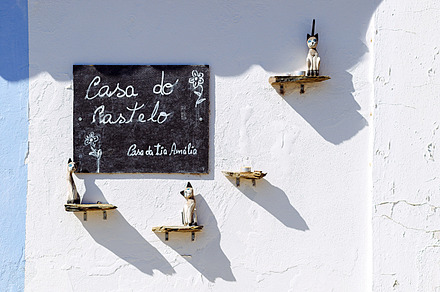 Casa do
Pastelo
Casa da Tia Amália